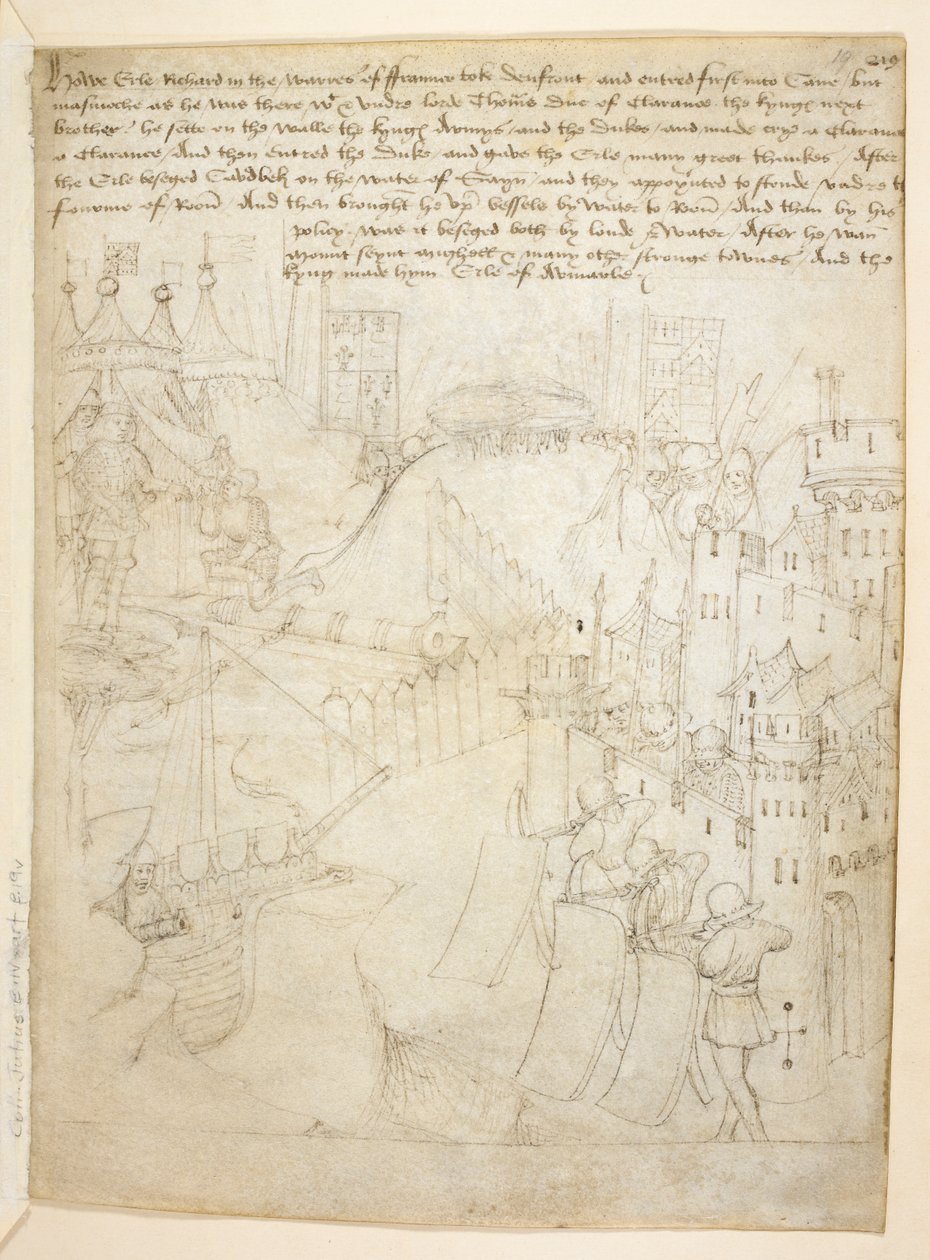 19 219
Howe Erle Richard in the warres of ffraunce toke Denfront and entred first into Cane / but
masmoche as he was there wt & vndre lorde Thoms Duc of Clarance the kyngs next
brother / he sette on the walle the kyngs Armys / and the Dukes / and made crye a Clarance
a Clarance / And then entred the Duke / and gave the Erle many greet thankes / After
the Erle beseged Cawdbek on the water of Sayn / and they appoynted to stonde vndre the
fourme of Roon / And then brought he vp vessels by water to Roon / And than by his
policy was it beseged both by londe & Water / After he wan
Mount seynt Mighell & many other stronge townes / And the
kyng made hym Erle of Aumarle
Cott. Julius E IV art 6. f. 19v